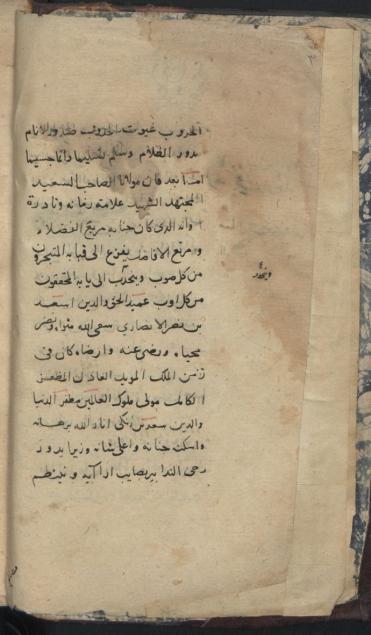 الحروب غيوث الجدوب صدور الانام
بدور الظلام وسلم تسليما دائما جسيما
امّا بعد فان مولانا الصاحب السعيد
المجتهد الشهيد علامة زمانه ونادرة
اوانه الذى كان جنابه مرجع الفضلاء
ومرتع الافاضل يفزع الى قبابه المتبحرون
من كل صوب وينجذب الى بابه المحققون
من كل اوب عميد الحق والدين اسعد
بن نصر الانصاري سقى الله ثراه ونضر
محياه ورضي عنه وارضاه كان في
زمن الملك المويد العادل المظفر
مولى ملوك العالمين مظفر الدنيا
والدين سعد بن اتابك انار الله برهانه
واسكنه جنانه واعلى شانه وزيرا يدور
رحى التدابير بصايب ارآيه وينتظم